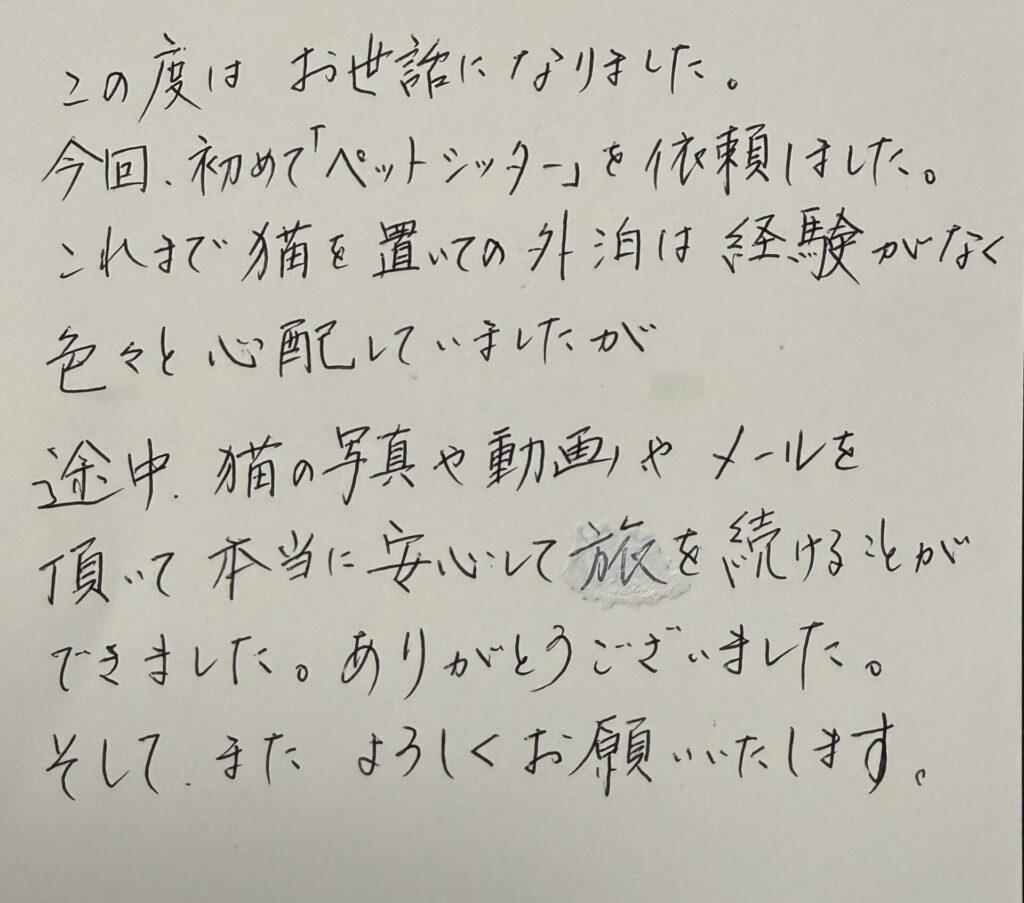 この度は お世話になりました。
今回、初めて「ペットシッター」を依頼しました。
これまで猫を置いての外泊は経験がなく
色々と心配していましたが
途中、猫の写真や動画やメールを
頂いて本当に安心して旅を続けることが
できました。ありがとうございました。
そして、また よろしくお願いいたします。